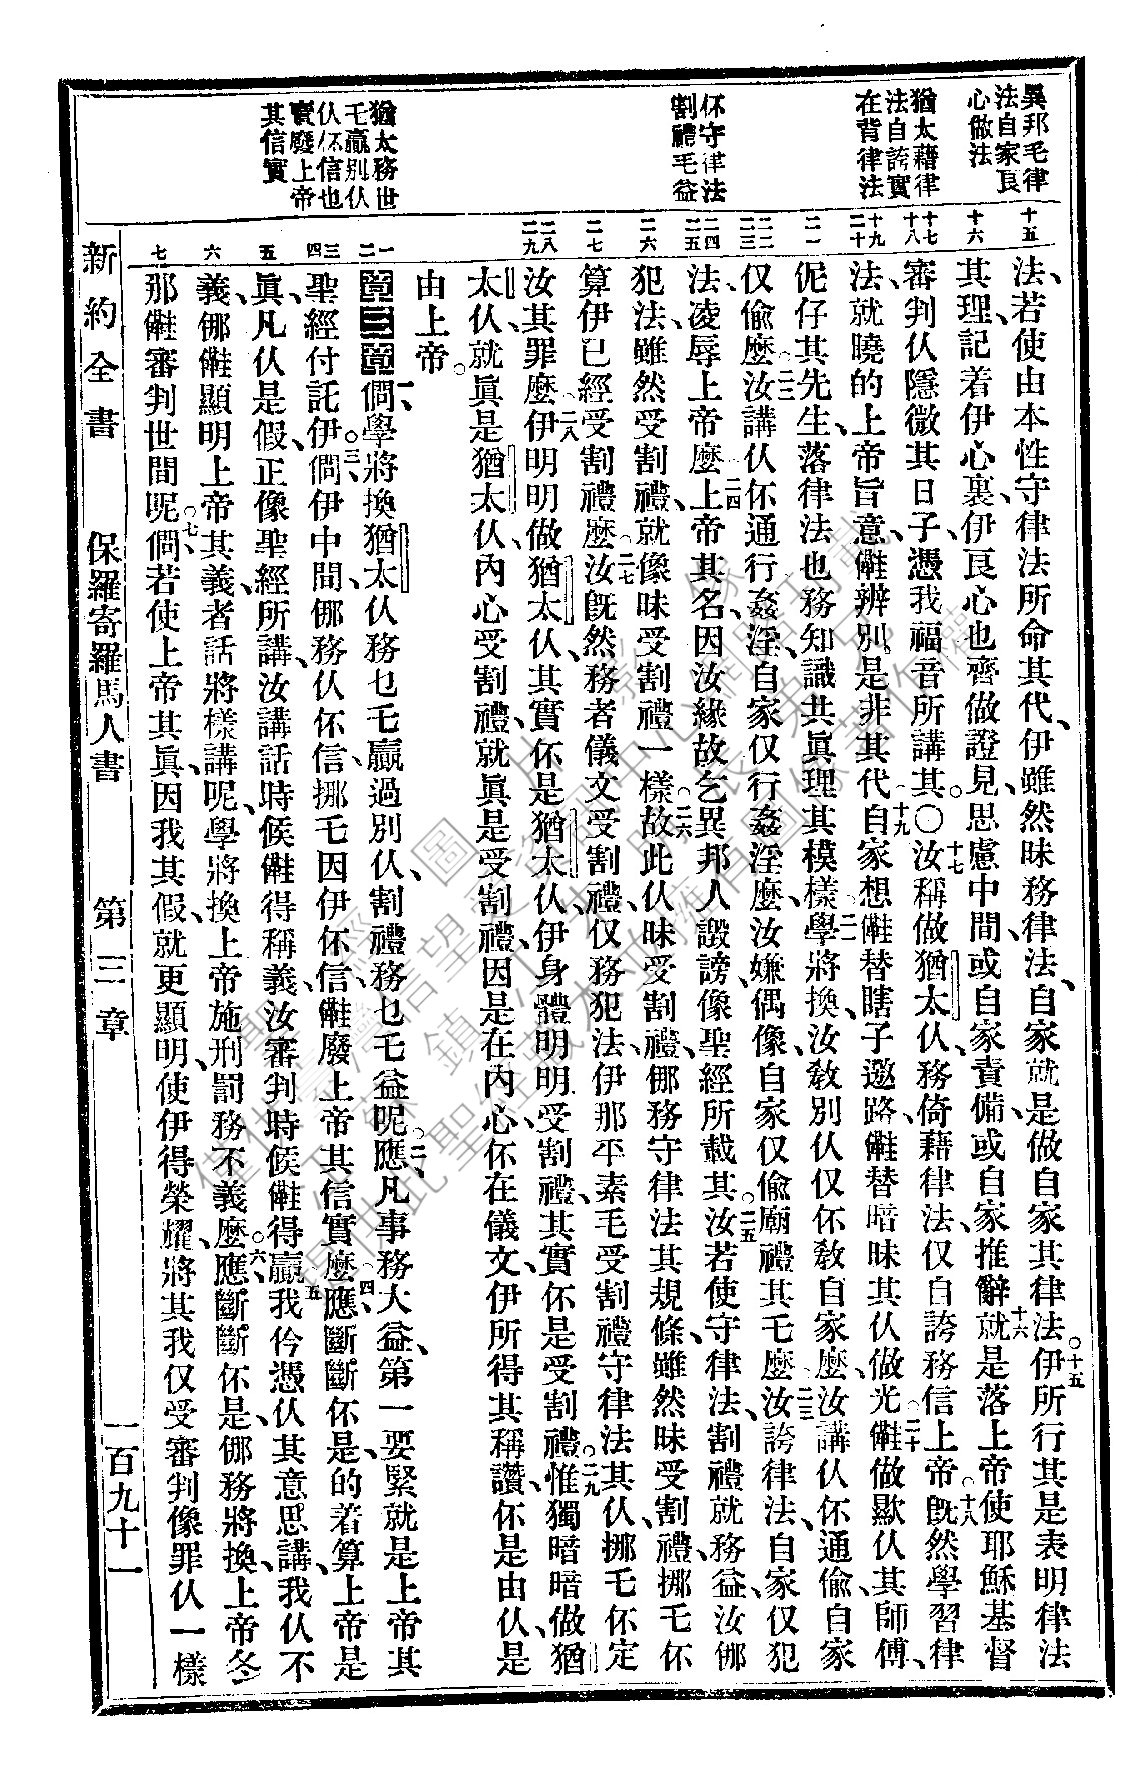 異邦毛律
法自家良
心做法
猶太藉律
法自誇實
在背律法
伓守律法
割禮毛益
猶太務世
乇贏別仈
仈伓信也
賣廢上帝
其信實
十五
十六
十七
十八
十九
二十
二一
二二
二三
二四
二五
二六
二七
二八
二九
一
二
三
四
五
六
七
法、若使由本性守律法所命其代、伊雖然昧務律法、自家就是做自家其律法。十五伊所行其是表明律法
其理、記着伊心裏、伊良心也齊做證見、思慮中間、或自家責備、或自家推辭。十六就是落上帝使耶穌基督
審判仈隱微其日子、憑我福音所講其。〇十七汝稱做猶太仈、務倚藉律法、仅自誇務信上帝、十八旣然學習律
法、就曉的上帝旨意、𠆧辨別是非其代、十九自家想𠆧替瞎子邀路、𠆧替暗昧其仈做光、二十𠆧做歟仈其師傅、
伲仔其先生、落律法也務知識共眞理其模樣、二一學將換、汝教別仈、仅伓教自家麽、汝講仈伓通偷、自家
仅偷麽。二二汝講仈伓通行姦淫、自家仅行姦淫麽、汝嫌偶像、自家仅偷廟禮其乇麽、二三汝誇律法、自家仅犯
法、凌辱上帝麽、二四上帝其名、因汝緣故、乞異邦人譭謗、像聖經所載其。二五汝若使守律法、割禮就務益、汝㑚
犯法、雖然受割禮、就像昧受割禮一樣。二六故此仈昧受割禮、㑚務守律法其規條、雖然昧受割禮、挪乇伓
算伊已經受割禮麽。二七汝旣然務者儀文受割禮、仅務犯法、伊那平素毛受割禮、守律法其仈、挪乇伓定
汝其罪麽。二八伊明明做猶太仈、其實伓是猶太仈、伊身體明明受割禮、其實伓是受割禮。二九惟獨暗暗做猶
太仈、就眞是猶太仈、內心受割禮、就眞是受割禮、因是在內心、伓在儀文、伊所得其稱讚、伓是由仈、是
由上帝。
第三章一、倘學將換、猶太仈務乜乇贏過別仈、割禮務乜乇益呢。二應凡事務大益、第一要緊、就是上帝其
聖經付託伊倘。三伊中間㑚務仈伓信、挪乇因伊伓信、𠆧廢上帝其信實麽、四應斷斷伓是、的着算上帝是
眞、凡仈是假、正像聖經所講、汝講話時候、𠆧得稱義、汝審判時候、𠆧得贏。五我仱憑仈其意思講、我仈不
義、㑚𠆧顯明上帝其義、者話將樣講呢、學將換、上帝施刑罰、務不義麽。六應斷斷伓是、㑚務將換、上帝冬
那𠆧審判世間呢。七倘若使上帝其眞、因我其假、就更顯明、使伊得榮耀、將其我仅受審判、像罪仈一樣
新約全書　保羅寄羅馬人書　第三章　一百九十一